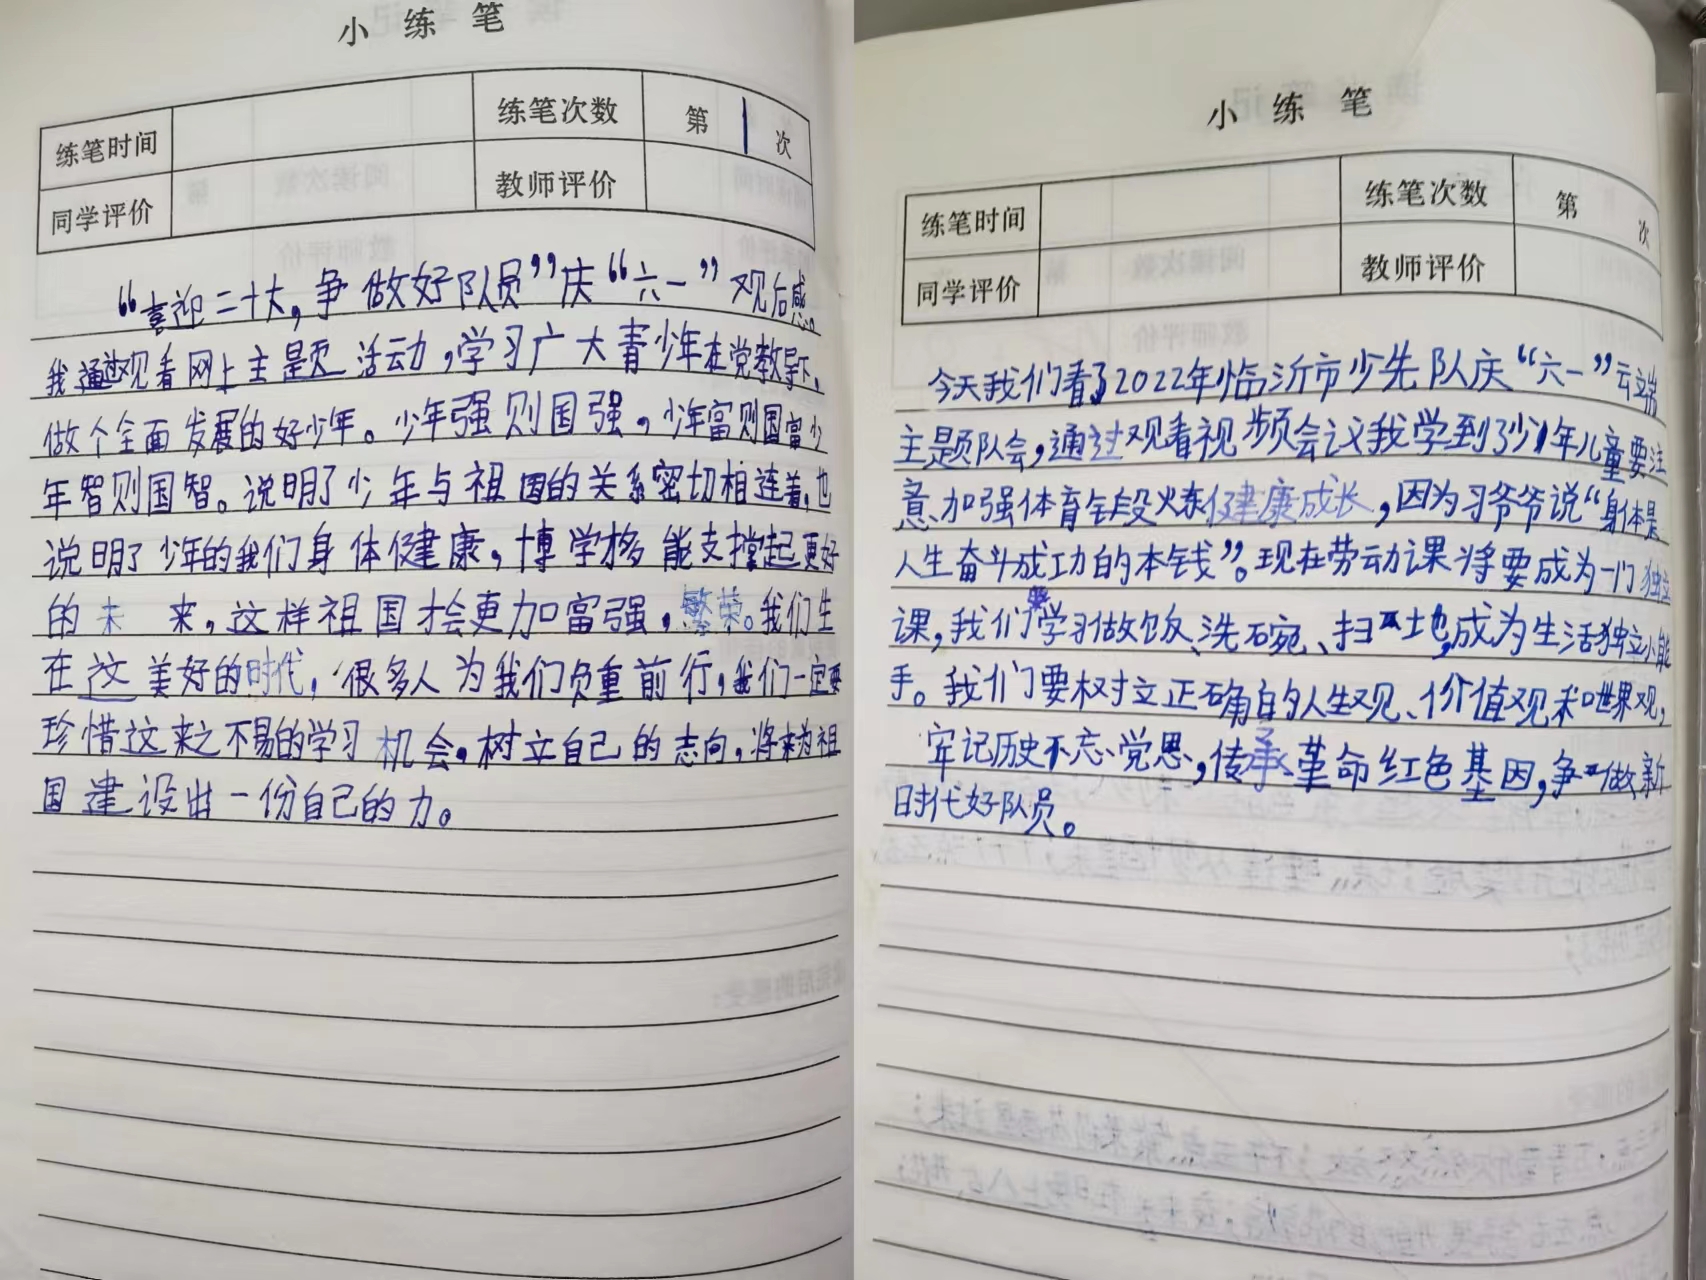 小练笔
练笔时间 练笔次数 第1次
同学评价 教师评价
“喜迎二十大,争做好队员”庆“六一”观后感。
我通过观看网上主题活动,学习广大青少年在党教导下,
做个全面发展的好少年。少年强则国强,少年富则国富少
年智则国智。说明了少年与祖国的关系密切相连着,也
说明了少年的我们身体健康,博学多能支撑起更好
的未来,这样祖国才会更加富强,繁荣。我们生
在这美好的时代,很多人为我们负重前行,我们一定要
珍惜这来之不易的学习机会。树立自己的志向,将来为祖
国建设出一份自己的力。
小练笔
练笔时间 练笔次数 第次
同学评价 教师评价
今天我们看了2022年临沂市少先队庆“六一”云端
主题队会,通过观看视频会议我学到了少年儿童要注
意加强体育锻炼健康成长,因为习爷爷说“身体是
人生奋斗成功的本钱”。现在劳动课将要成为一门独立
课,我们要学习做饭、洗碗、扫地,成为生活独立小能
手。我们要树立正确的人生观、价值观和世界观,
牢记历史不忘党恩,传承革命红色基因,争做新
时代好队员。